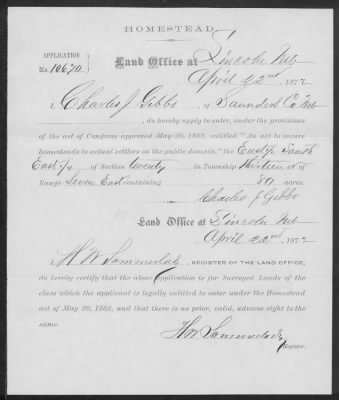 HOMESTEAD.
APPLICATION
No. 10670.
Land Office at Lincoln Neb
April 22nd, 1872
I, Charles J Gibbs, of Saunders Co Neb
do hereby apply to enter, under the provisions
of the act of Congress approved May 20, 1862, entitled "An act to secure
homesteads to actual settlers on the public domain," the East ½ South
East ¼ of Section twenty in Township thirteen N of
Range Seven East containing 80 acres.
Charles J Gibbs
Land Office at Lincoln Neb
April 22nd, 1872
I, H W Sommerlad, REGISTER OF THE LAND OFFICE,
do hereby certify that the above application is for Surveyed Lands of the
class which the applicant is legally entitled to enter under the Homestead
act of May 20, 1862, and that there is no prior, valid, adverse right to the
same.
H W Sommerlad
Register.